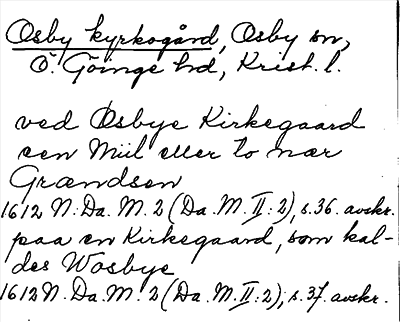 Osby kyrkogård, Osby sn,
Ö. Göinge hd, Krist. l.
ved Øsbye Kirkegaard
een Miil eller to nær
Grændsen
1612 N. Da. M. 2 (Da. M. II: 2), s. 36. avskr.
paa en Kirkegaard, som kal-
des Wosbye
1612 N. Da. M. 2 (Da. M. II: 2), s. 37. avskr.